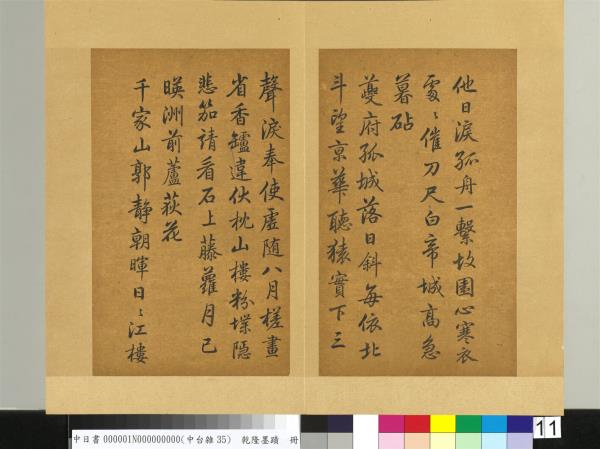 他日淚孤舟一繫故園心寒衣
處〻催刀尺〻白帝城高急
暮砧
夔府孤城落日斜每依北
斗望京華聽猿實下三
聲淚奉使虛隨八月槎畫
省香鑪違伏枕山樓粉堞隱
悲笳請看石上藤蘿月已
暎洲前蘆荻花
千家山郭靜朝暉日〻江樓
中日書 000001N000000000(中台雜 35) 乾隆墨蹟 冊
11